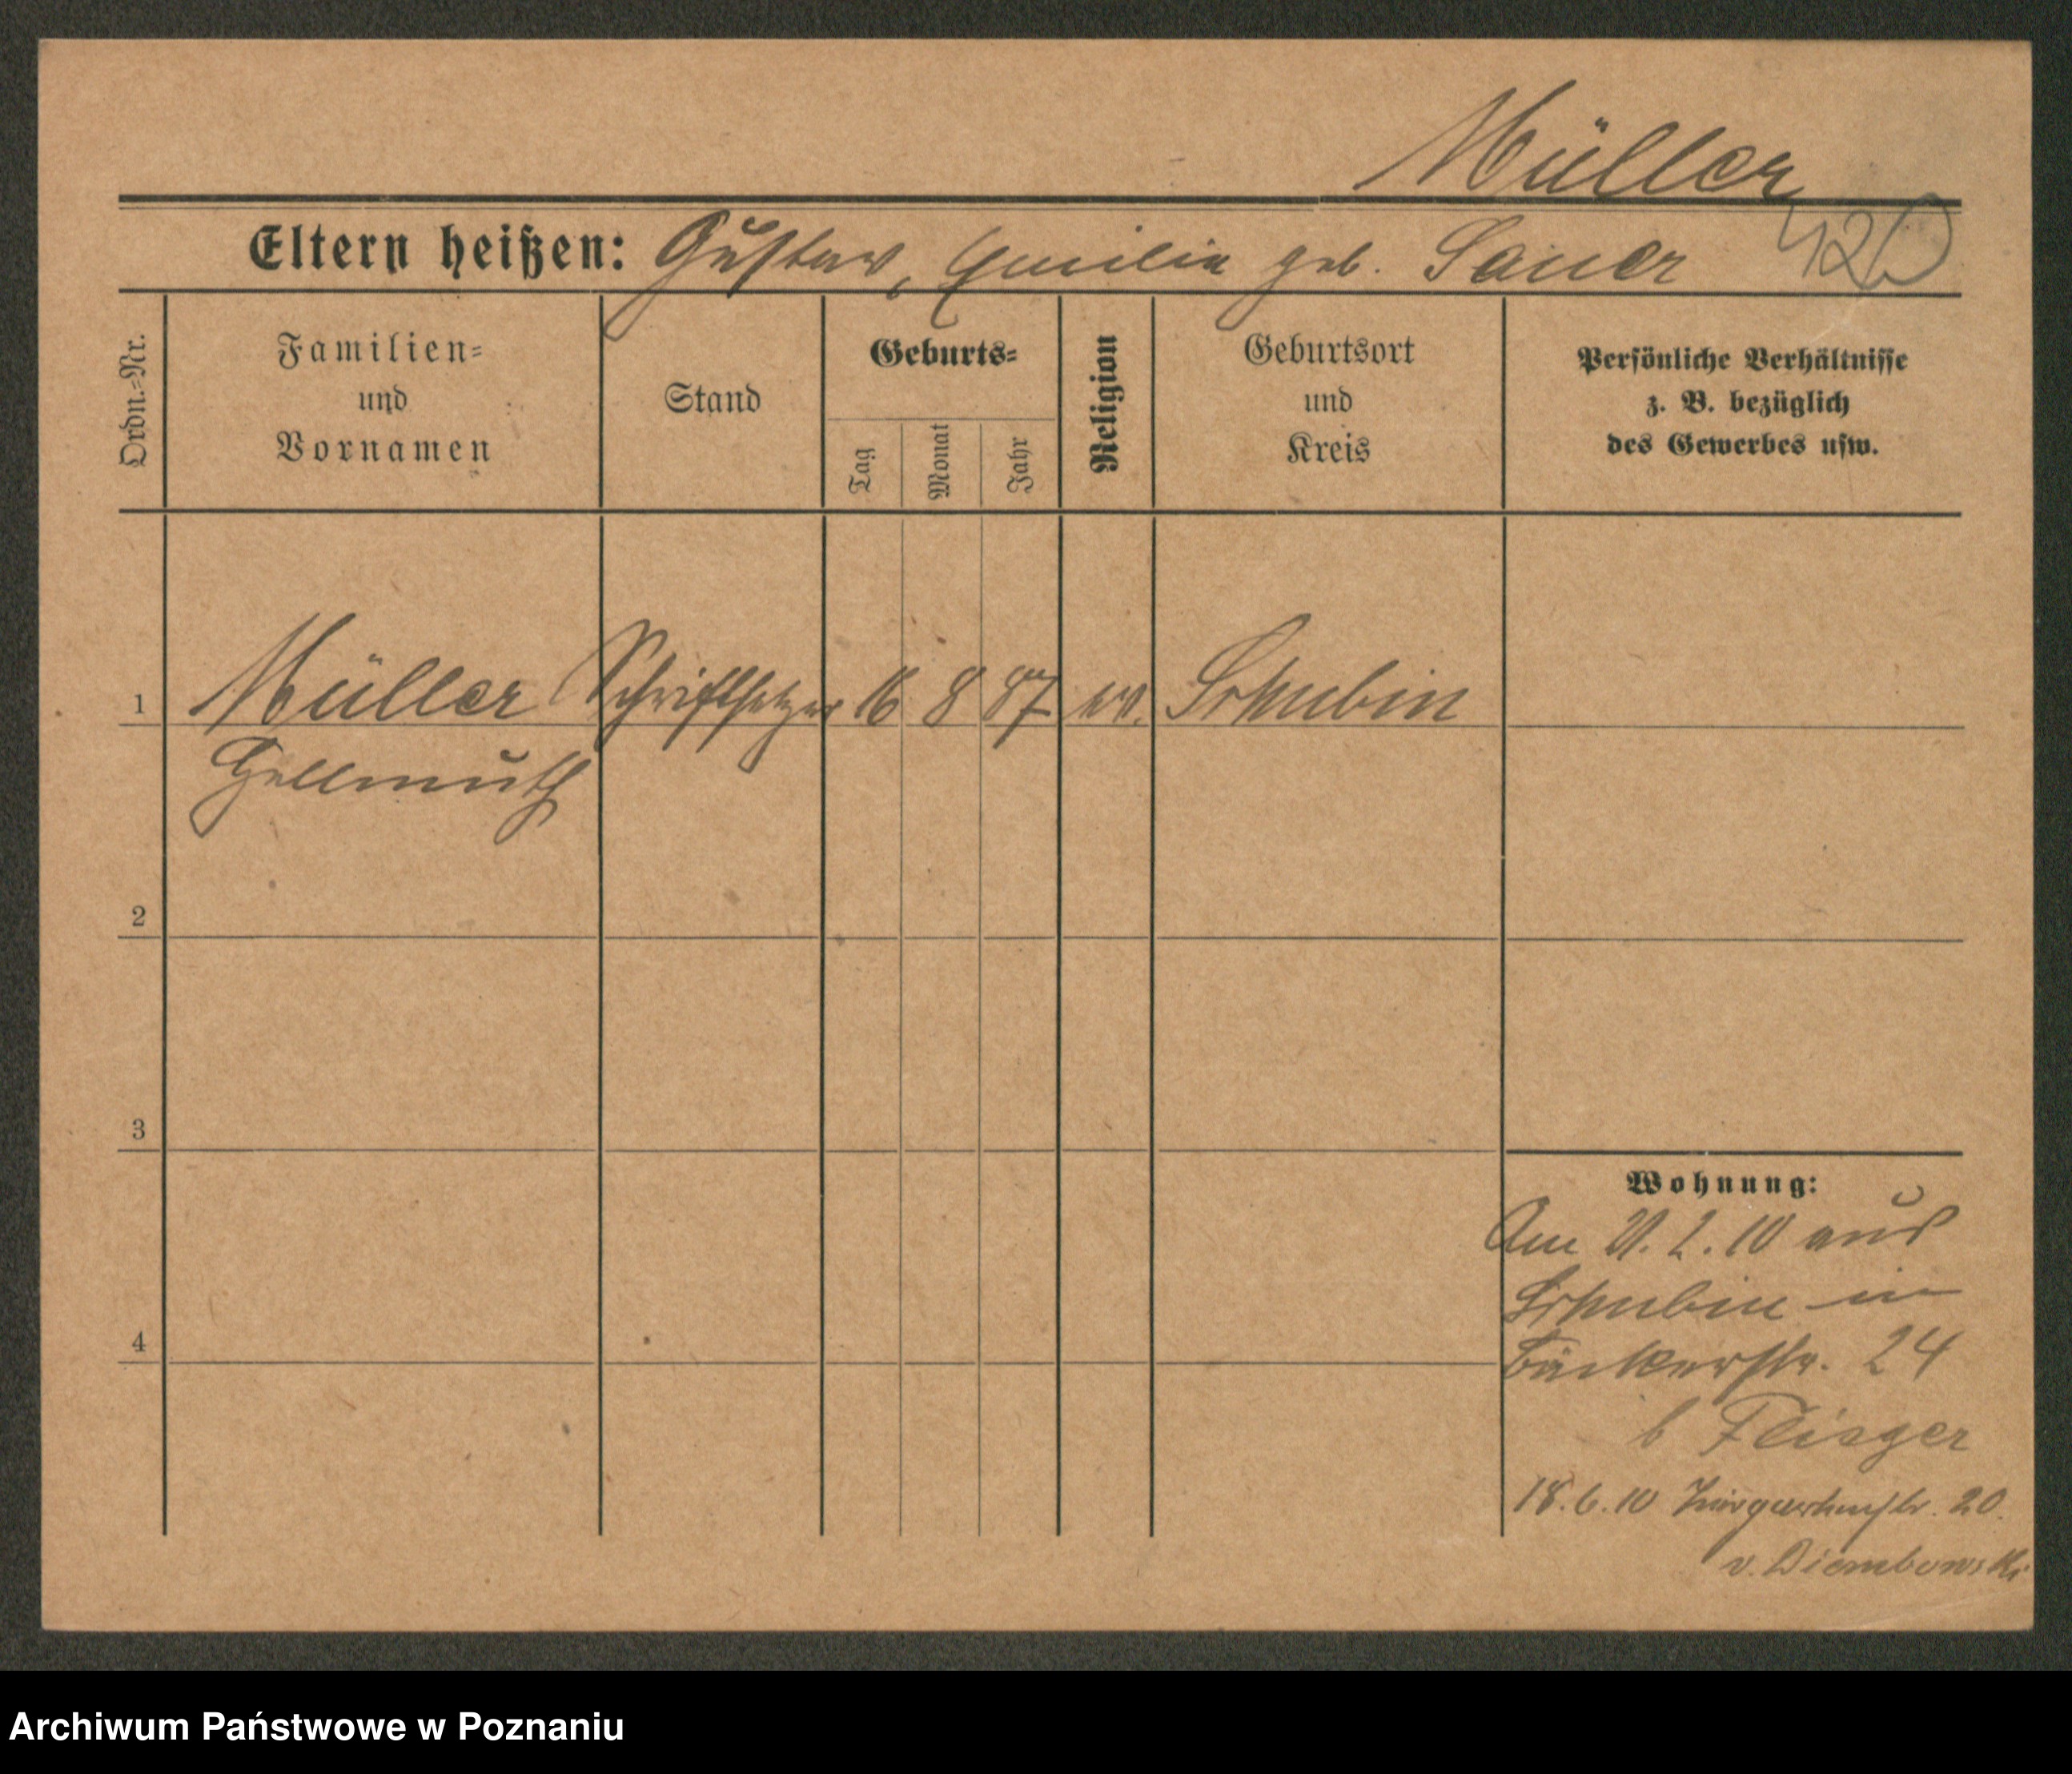 Müller
Eltern heißen: Gustav, Emilie geb. Sauer 420
Ordn.=Nr.
Familien=
und
Vornamen
Stand
Geburts=
Tag
Monat
Jahr
Religion
Geburtsort
und
Kreis
Persönliche Verhältnisse
z. B. bezüglich
des Gewerbes usw.
1 Müller Schriftsetzer 16 8 87 ev. Schubin
Hellmuth
2
3
4
Wohnung:
Am 21. 2. 10 aus
Schubin in
Bäckerstr. 24
b Flieger
18. 6. 10 20.
v. Diembowski
Archiwum Państwowe w Poznaniu